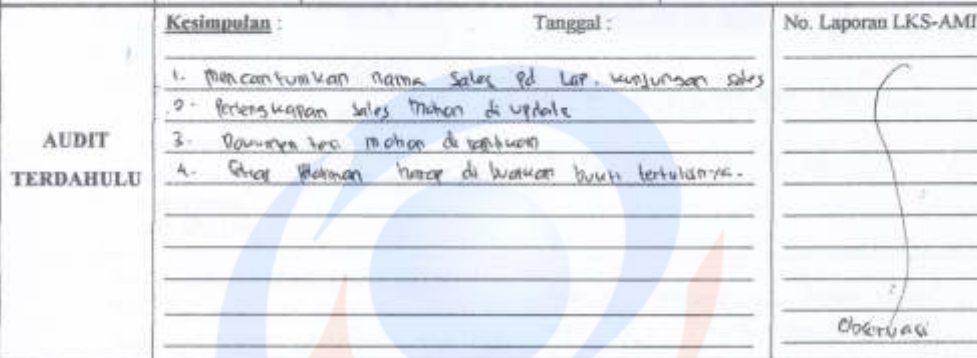 Kesimpulan : Tanggal : No. Laporan LKS-AMI
1. Mencantumkan nama Sales pd Lap. kunjungan sales
2. Perlengkapan sales mohon di update
3. Dokumen mohon di
AUDIT TERDAHULU
4. Setiap harap di buatkan bukti tertulisnya.
Observasi